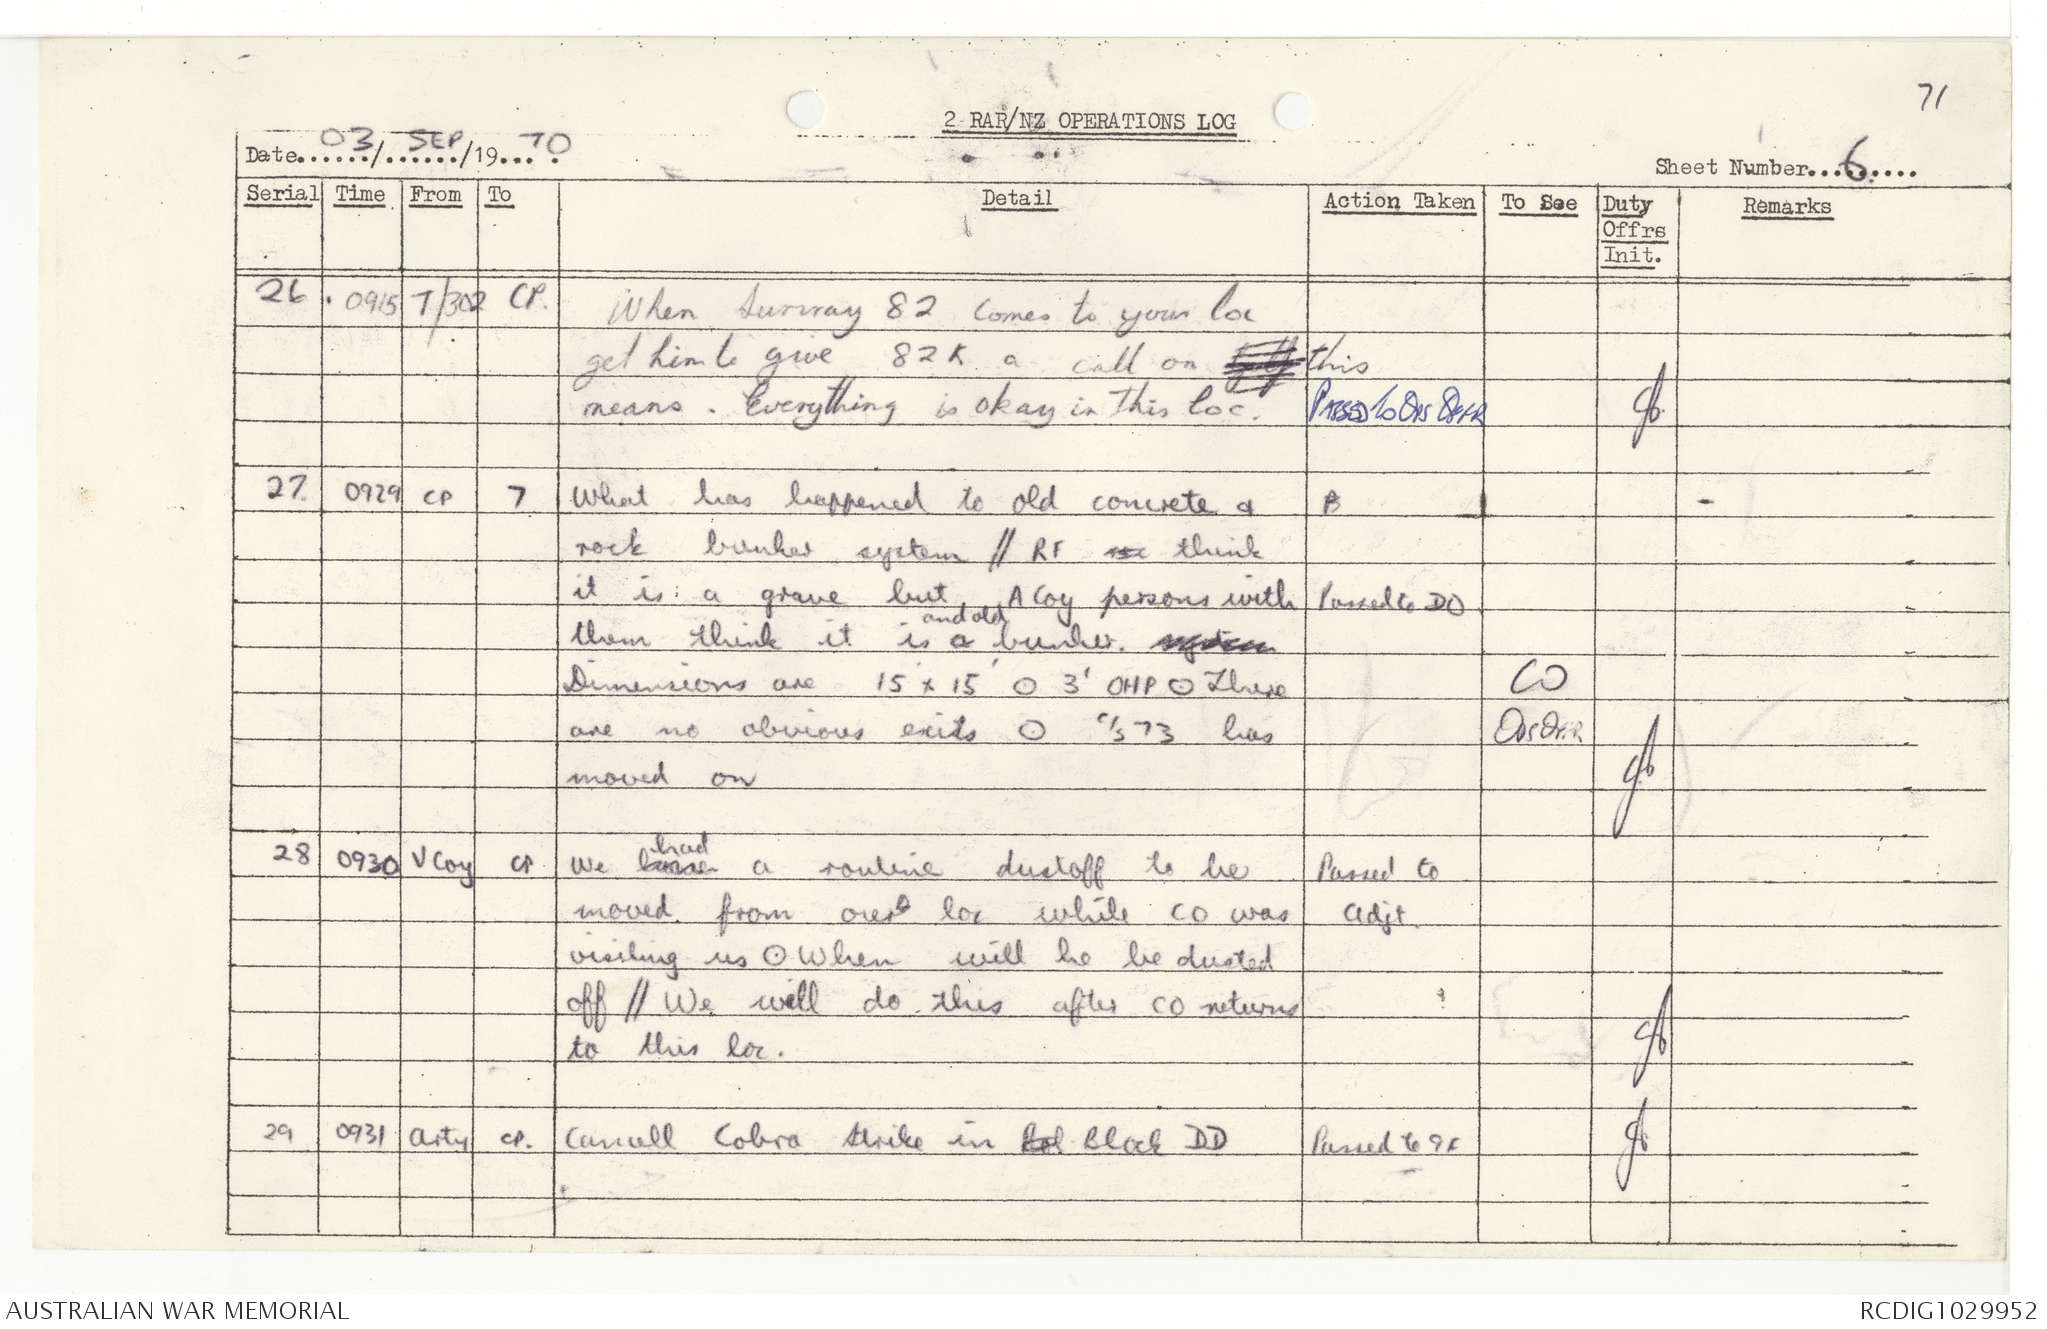 71
2 RAR/NZ OPERATIONS LOG
Date 03/SEP/1970
Sheet Number 6
Serial Time From To Detail Action Taken To See Duty Offrs Init. Remarks
26 0915 T/302 CP. When Sunray 82 comes to your loc
get him to give 82K a call on this
means. Everything is okay in this loc. PASSED to OPS OFFR
27 0929 CP 7 What has happened to old concrete &
rock bunker system // RF think
it is a grave but A Coy persons with Passed to DO
them think it is and old bunker.
Dimensions are 15 x 15' ⊙ 3' OHP ⊙ There CO
are no obvious exits ⊙ C/S 73 has OPS OFFR
moved on
28 0930 V Coy CP We had a routine dustoff to be Passed to
moved from our loc while CO was Adjt.
visiting us ⊙ When will he be dusted
off // We will do this after CO returns
to this loc.
29 0931 Arty CP. Cancell Cobra strike in Block DD Passed to 9F
AUSTRALIAN WAR MEMORIAL
RCDIG1029952